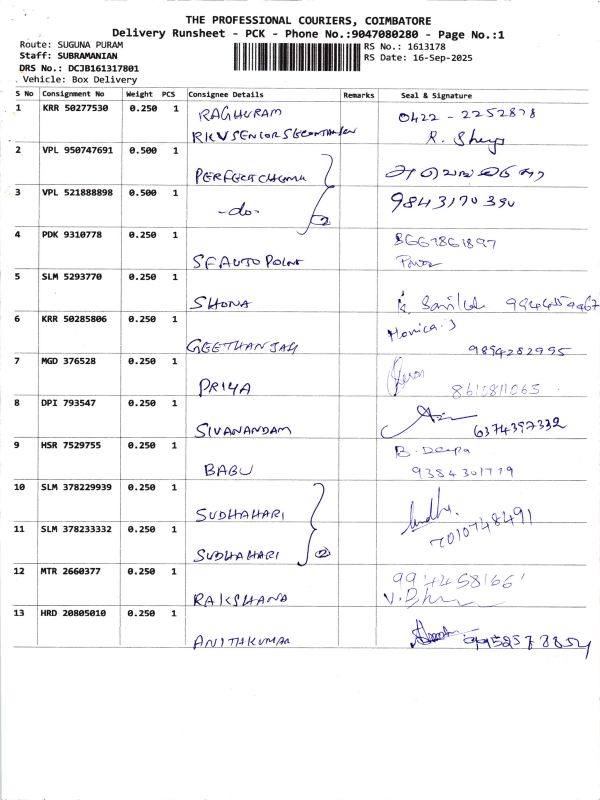 THE PROFESSIONAL COURIERS, COIMBATORE
Delivery Runsheet - PCK - Phone No.:9047080280 - Page No.:1
Route: SUGUNA PURAM
Staff: SUBRAMANIAN
DRS No.: DCJB161317801
Vehicle: Box Delivery
RS No.: 1613178
RS Date: 16-Sep-2025
S No Consignment No Weight PCS Consignee Details Remarks Seal & Signature
1 KRR 50277530 0.250 1 RAGHURAM 0422 - 2252878
2 VPL 950747691 0.500 1 PERFECT
3 VPL 521888898 0.500 1 -do- 2 9843170390
4 PDK 9310778 0.250 1 SF AUTO POINT
5 SLM 5293770 0.250 1 SHONA
6 KRR 50285806 0.250 1 Monica.J
GEETHANJALI 9894282995
7 MGD 376528 0.250 1 PRIYA 8610811065
8 DPI 793547 0.250 1 SIVANANDAM 6374397332
9 HSR 7529755 0.250 1 B. Deepa
BABU 9384301779
10 SLM 378229939 0.250 1 SUDHAHARI
11 SLM 378233332 0.250 1 SUDHAHARI 2 7010748491
12 MTR 2660377 0.250 1 RAKSHANA
13 HRD 20805010 0.250 1 ANITHKUMAR